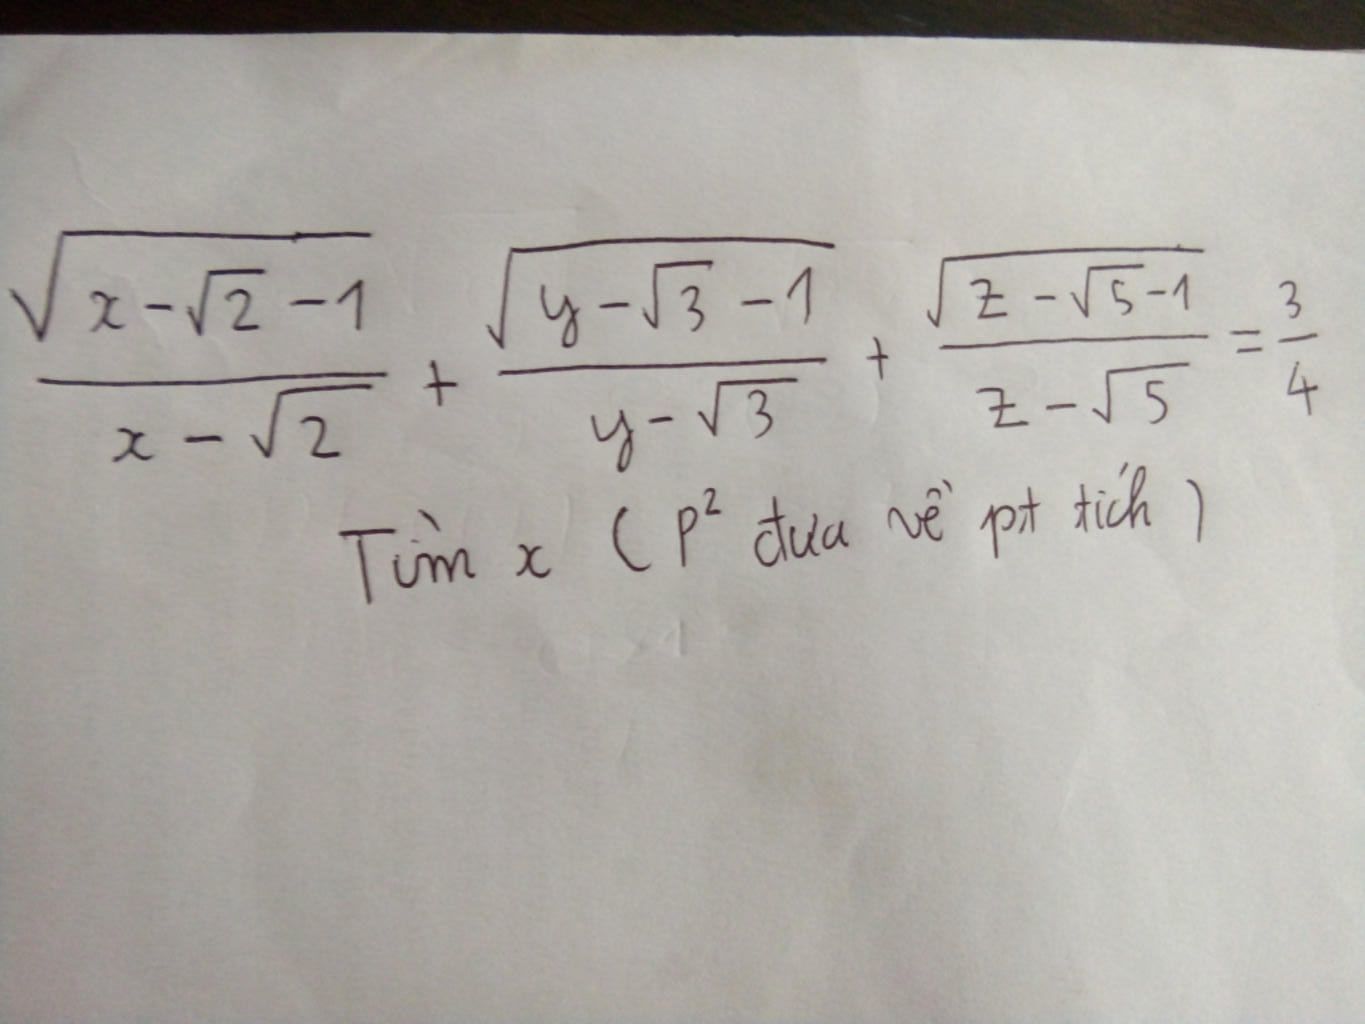 √(x-√2-1)/(x-√2) + √(y-√3-1)/(y-√3) + √(z-√5-1)/(z-√5) = 3/4
Tìm x (P² đưa về pt tích)